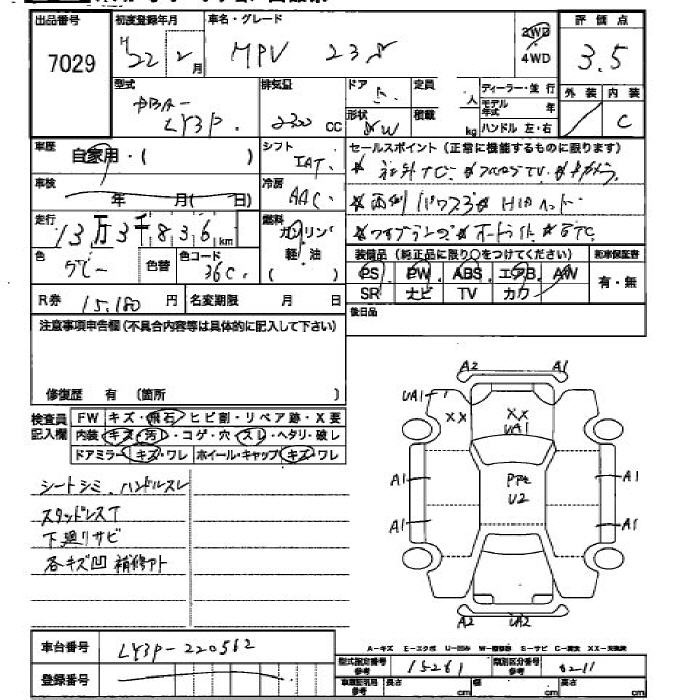 出品番号 初度登録年月 車名・グレード 評価点
7029 H 22 2 月 MPV 23S 2WD 4WD 3.5
型式 排気量 ドア 5. 定員 人 ディーラー・並行 外装 内装
DBA- LY3P. 2300 cc 形状 SW 積載 kg モデル年式 年 ハンドル 左・右 C
車歴 自家用・( ) シフト IAT. セールスポイント(正常に機能するものに限ります)
車検 年 月( 日) 冷房 AAC.
走行 13万3千836km 燃料 ガソリン 軽・油 ( )
色 グレー 色替 色コード 36C.
装備品(純正品に限り○をつけてください) 新車保証書
PS PW ABS エアB AW 有・無
SR ナビ TV カワ
R券 15,180 円 名変期限 月 日 後日品
注意事項申告欄(不具合内容等は具体的に記入して下さい)
修復歴 有 (箇所 )
検査員記入欄 FW キズ・飛石・ヒビ割・リペア跡・X要
内装 キズ・汚レ・コゲ・穴・スレ・ヘタリ・破レ
ドアミラー キズ・ワレ ホイール・キャップ キズ・ワレ
シートシミ、ハンドルスレ
スタッドレスT
下廻リサビ
各キズ凹 補修アト
A2 A1
UA1 XX XX UA1
A1 PPt U2 A1
A1 A1
A2 UA2 A1
車台番号 LY3P-220562
登録番号
A-キズ E-エクボ U-凹み S-サビ
型式指定番号 参考 15261 類別区分番号 参考
長さ cm 幅 cm 高さ cm